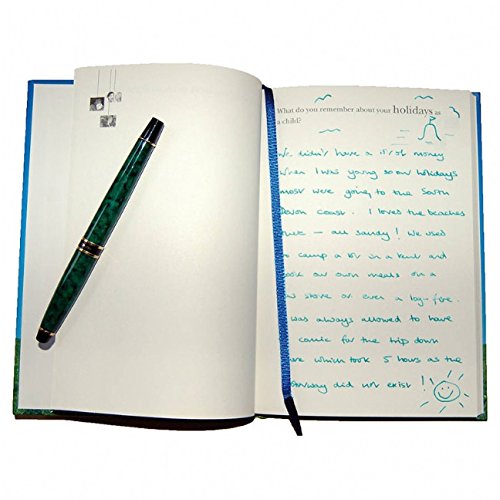 What do you remember about your holidays as
a child?
We didn't have a lot of money
when I was young so our holidays
most were going to the South
Devon coast. I loved the beaches
there - all sandy! We used
to camp a lot in a tent and
cook our own meals on a
stove or even a log-fire.
I was always allowed to have
a comic for the trip down
there which took 5 hours as the
motorway did not exist!